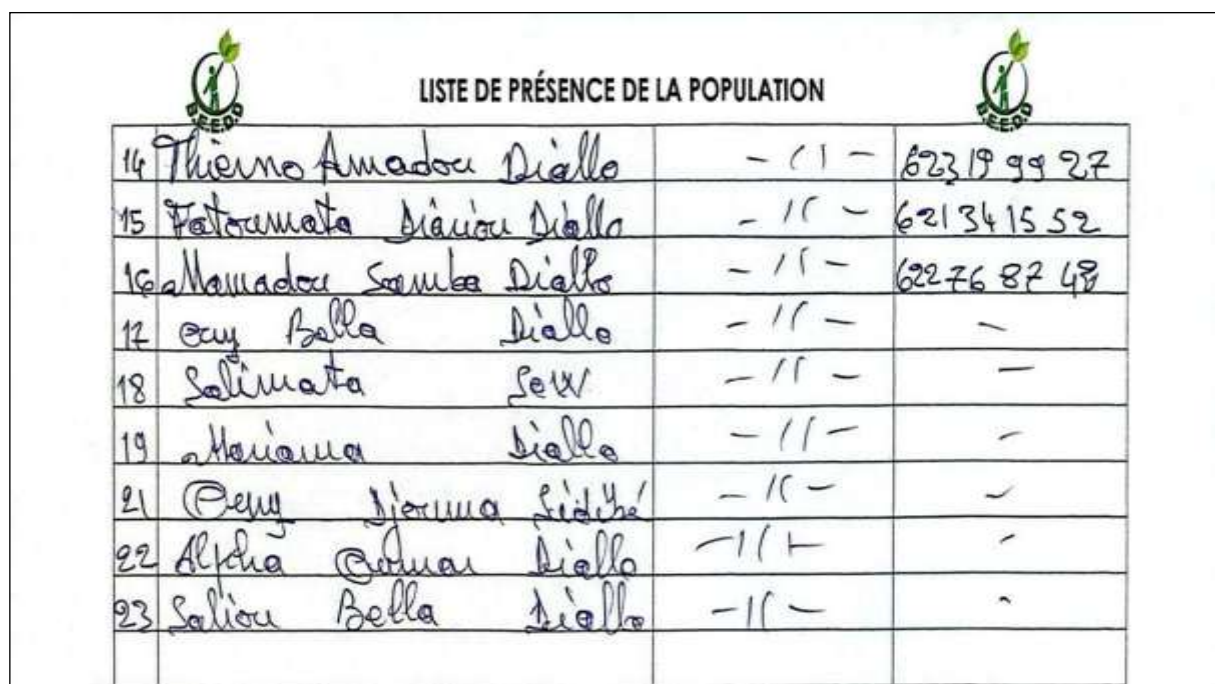 LISTE DE PRÉSENCE DE LA POPULATION
B.E.E.D.D B.E.E.D.D
14 Thierno Amadou Diallo - 11 - 623 19 99 27
15 Fatoumata Diariou Diallo - 11 - 621 34 15 52
16 Mamadou Samba Diallo - 11 - 622 76 87 48
17 Bella Diallo - 11 - -
18 Salimata Sow - 11 - -
19 Mariama Diallo - 11 - -
21 Djouma Sidibé - 11 - -
22 Alpha Oumar Diallo - 11 - -
23 Saliou Bella Diallo - 11 - -